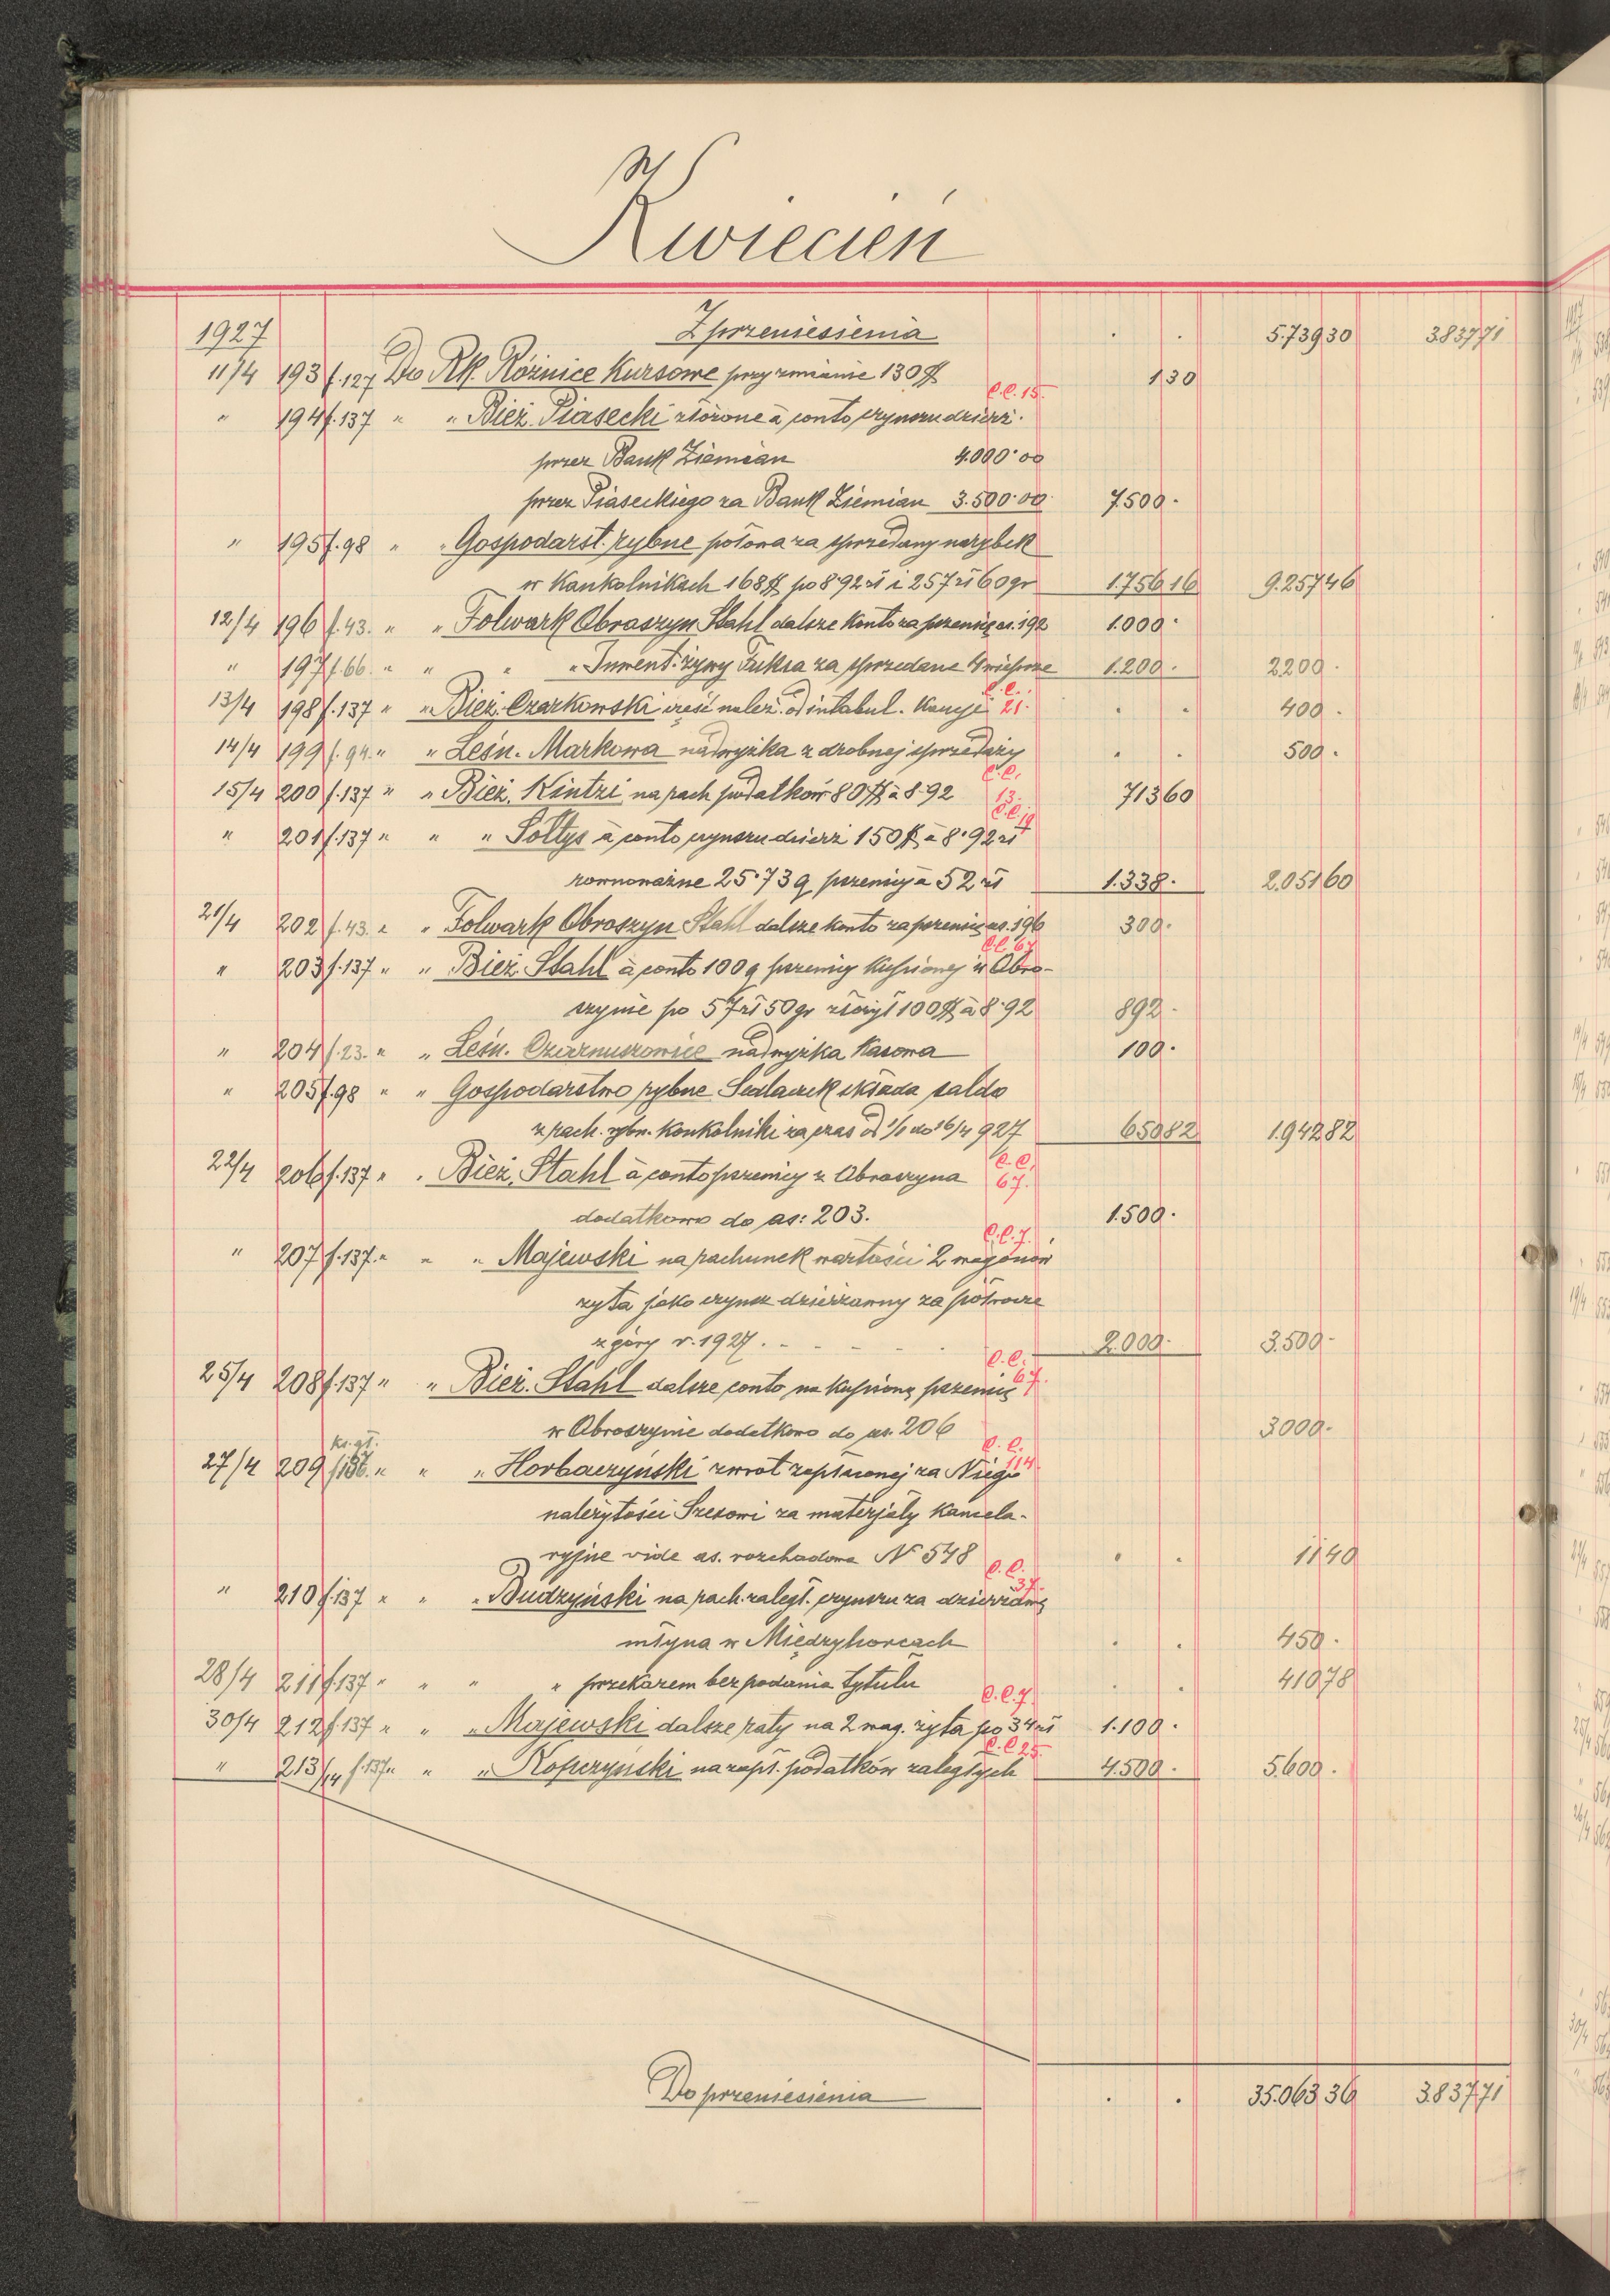 W
Kwiecień
1927 Z przeniesienia . . 5.739 30 3.837 71
11/4 193 f.127 Do Rk. Różnice Kursowe przy zmianie 130 $ 1 30
" 194 f.137 " " Bież. Piasecki złożone à conto czynszu dzierż. C.C. 15.
przez Bank Ziemian 4.000·00
przez Piaseckiego za Bank Ziemian 3.500·00 7.500 .
" 195 f.98 " " Gospodarst. rybne połowa za sprzedany narybek
w Kąkolnikach 168 $ po 8·92 zł i 257 zł 60 gr 1.756 16 9.257 46
12/4 196 f.43. " " Folwark Obroszyn Stahl dalsze Konto za pszenicę as. 192 1.000 .
" 197 f.66. " " " " Inwent. żywy Fuksa za sprzedane 4 wieprze 1.200 . 2.200 .
13/4 198 f.137 " " Bież. Czarkowski część należ. od intabul. Kaucji C.C. 21. . . 400 .
14/4 199 f.94. " " Leśn. Markowa nadwyżka z drobnej sprzedaży . . 500 .
15/4 200 f.137 " " Bież. Kintzi na rach podatków 80 $ à 8·92 C.C. 13. 713 60
" 201 f.137 " " " Sołtys à conto czynszu dzierż 150 $ à 8·92 zł C.C. 19
równoważne 25·73 q pszenicy à 52 zł 1.338 . 2.051 60
21/4 202 f.43. " " Folwark Obroszyn Stahl dalsze konto za pszenicę as. 196 300 .
" 203 f.137 " " Bież. Stahl à conto 100 q pszenicy Kupionej w Obro- C.C. 67
szynie po 57 zł 50 gr złożył 100 $ à 8·92 892 .
" 204 f.23. " " Leśn. Czarnuszowice nadwyżka Kasowa 100 .
" 205 f.98 " " Gospodarstwo rybne Sedlaczek składa saldo
z rach. rybn. Konkolniki za czas od 1/1 do 16/4 927 650 82 1.942 82
22/4 206 f.137 " " Bież. Stahl à conto pszenicy z Obroszyna C.C. 67.
dodatkowo do as: 203. 1.500 .
" 207 f.137. " " " Majewski na rachunek wartości 2 wagonów C.C. 7.
żyta jako czynsz dzierżawny za półrocze
z góry r. 1927. 2.000 . 3.500 -
25/4 208 f.137 " " Bież. Stahl dalsze conto na Kupioną pszenicę C.C. 67.
w Obroszynie dodatkowo do as. 206 3000 -
27/4 209 ks. gł. f. " " " Horbaczyński zwrot zapłaconej za Niego C.C. 114
należytości Szczowi za materjały Kancela-
ryjne vide as. rozchodowa № 548 . . 11 40
" 210 f.137 " " " Budzyński na rach. zaległ. czynszu za dzierżawę C.C. 37.
młyna w Międzyhorcach . . 450 .
28/4 211 f.137 " " " " przekazem bez podania tytułu . . 410 78
30/4 212 f.137 " " " Majewski dalsze raty na 2 wag. żyta po 34 zł C.C. 7. 1.100 .
" 213/14 f.137 " " " Kopczyński na zapł. podatków zaległych C.C. 25. 4.500 . 5.600 .
Do przeniesienia . . 35.063 36 3.837 71